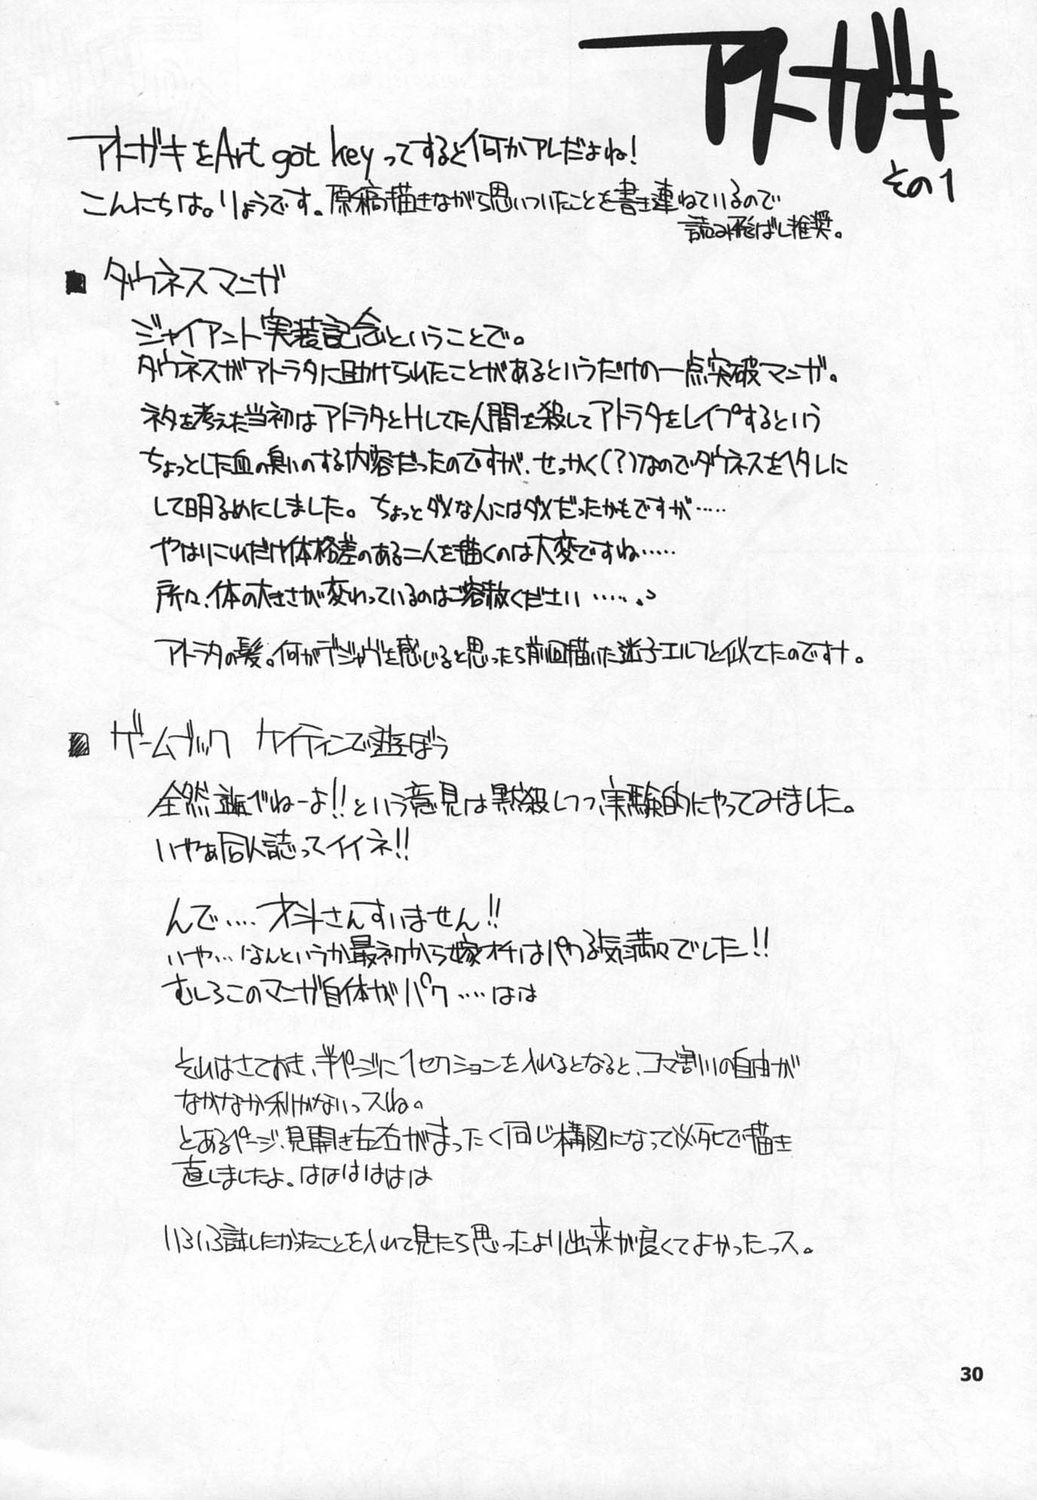 アトガキ
その1
アトガキをArt got keyってすると何かアレだよね!
こんにちは。りょうです。原稿描きながら思いついたことを書き連ねているので
読み飛ばし推奨。
■ ダウネスマンガ
ジャイアント実装記念ということで。
ダウネスがアトラタに助けられたことがあるというだけの一点突破マンガ。
ネタを考えた当初はアトラタとHしてた人間を殺してアトラタをレイプするという
ちょっとした血の臭いのする内容だったのですが、せっかく(?)なのでダウネスをヘタレに
して明るめにしました。ちょっとダメな人にはダメだったかもですが……
やはりこれだけ体格差のある二人を描くのは大変ですね……
所々、体の大きさが変わっているのはご容赦ください……。
アトラタの髪。何かデジャヴを感じると思ったら前回描いた迷子エルフと似てたのですナ。
■ ゲームブック ケイティンで遊ぼう
全然遊べねーよ!!という意見は黙殺しつつ実験的にやってみました。
いやぁ同人誌ってイイネ!!
んで…‥才斗さんすいません!!
いや…なんというか最初から嫁オチはパクる気満々でした!!
むしろこのマンガ自体がパク‥‥はは
それはさておき、半ページに1セクションを入れるとなると、コマ割りの自由が
なかなか利かないっスね。
とあるページ、見開き左右がまったく同じ構図になって必死で描き
直しましたよ。はははははは
いろいろ試したかったことを入れて見たら思ったより出来が良くてよかったっス。
30